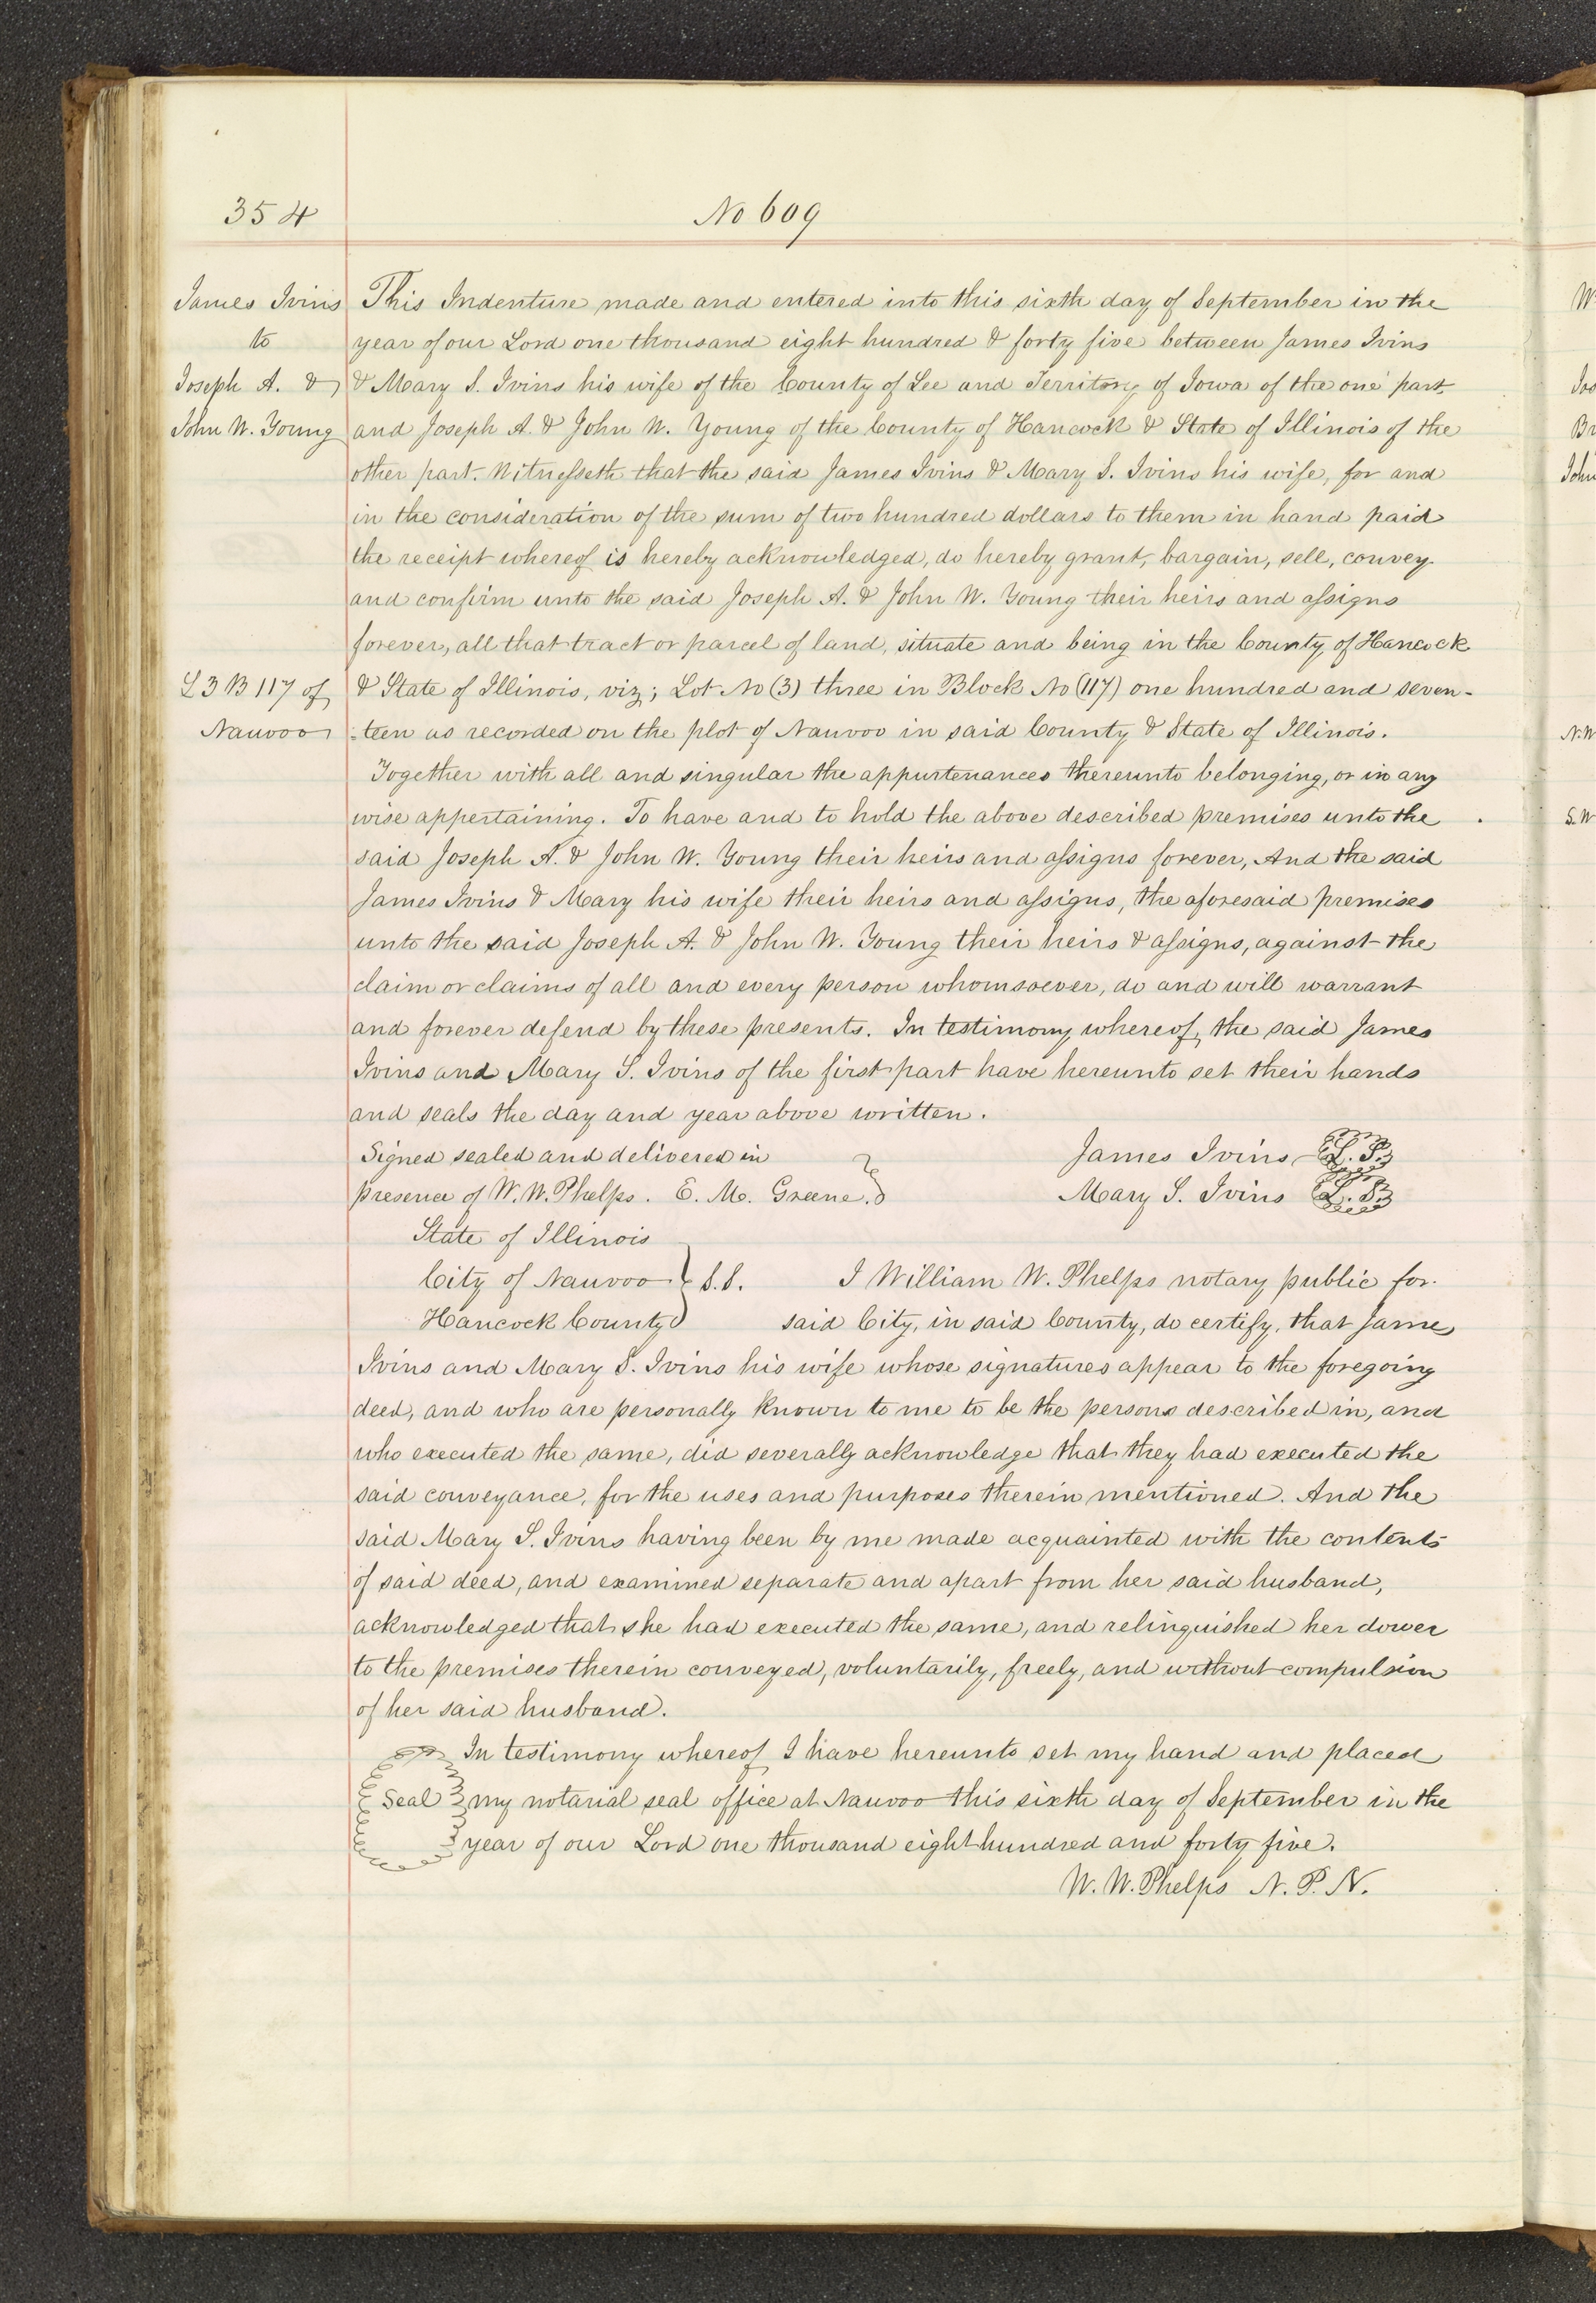 354
No 609
James Ivins
to
Joseph A. &
John W. Young
This Indenture made and entered into this sixth day of September in the
year of our Lord one thousand eight hundred & forty five between James Ivins
& Mary S. Ivins his wife of the County of Lee and Territory of Iowa of the one part
and Joseph A. & John W. Young of the County of Hancock & State of Illinois of the
other part. Witnesseth that the said James Ivins & Mary S. Ivins his wife, for and
in the consideration of the sum of two hundred dollars to them in hand paid
the receipt whereof is hereby acknowledged, do hereby grant, bargain, sell, convey
and confirm unto the said Joseph A. & John W. Young their heirs and assigns
forever, all that tract or parcel of land, situate and being in the County of Hancock
L 3 B 117 of
Nauvoo
& State of Illinois, viz; Lot No (3) three in Block No (117) one hundred and seven-
-teen as recorded on the plot of Nauvoo in said County & State of Illinois.
Together with all and singular the appurtenances thereunto belonging, or in any
wise appertaining. To have and to hold the above described premises unto the
said Joseph A. & John W. Young their heirs and assigns forever, And the said
James Ivins & Mary his wife their heirs and assigns, the aforesaid premises
unto the said Joseph A. & John W. Young their heirs & assigns, against the
claim or claims of all and every person whomsoever, do and will warrant
and forever defend by these presents. In testimony whereof, the said James
Ivins and Mary S. Ivins of the first part have hereunto set their hands
and seals the day and year above written.
Signed sealed and delivered in
presence of W. W. Phelps. E. M. Greene.
James Ivins L. S.
Mary S. Ivins L. S.
State of Illinois
City of Nauvoo } S.S. I William W. Phelps notary public for
Hancock County said City, in said County, do certify, that James
Ivins and Mary S. Ivins his wife whose signatures appear to the foregoing
deed, and who are personally known to me to be the persons described in, and
who executed the same, did severally acknowledge that they had executed the
said conveyance, for the uses and purposes therein mentioned. And the
said Mary S. Ivins having been by me made acquainted with the contents
of said deed, and examined separate and apart from her said husband,
acknowledged that she had executed the same, and relinquished her dower
to the premises therein conveyed, voluntarily, freely, and without compulsion
of her said husband.
In testimony whereof, I have hereunto set my hand and placed
Seal my notarial seal office at Nauvoo this sixth day of September in the
year of our Lord one thousand eight hundred and forty five.
W. W. Phelps N. P. N.